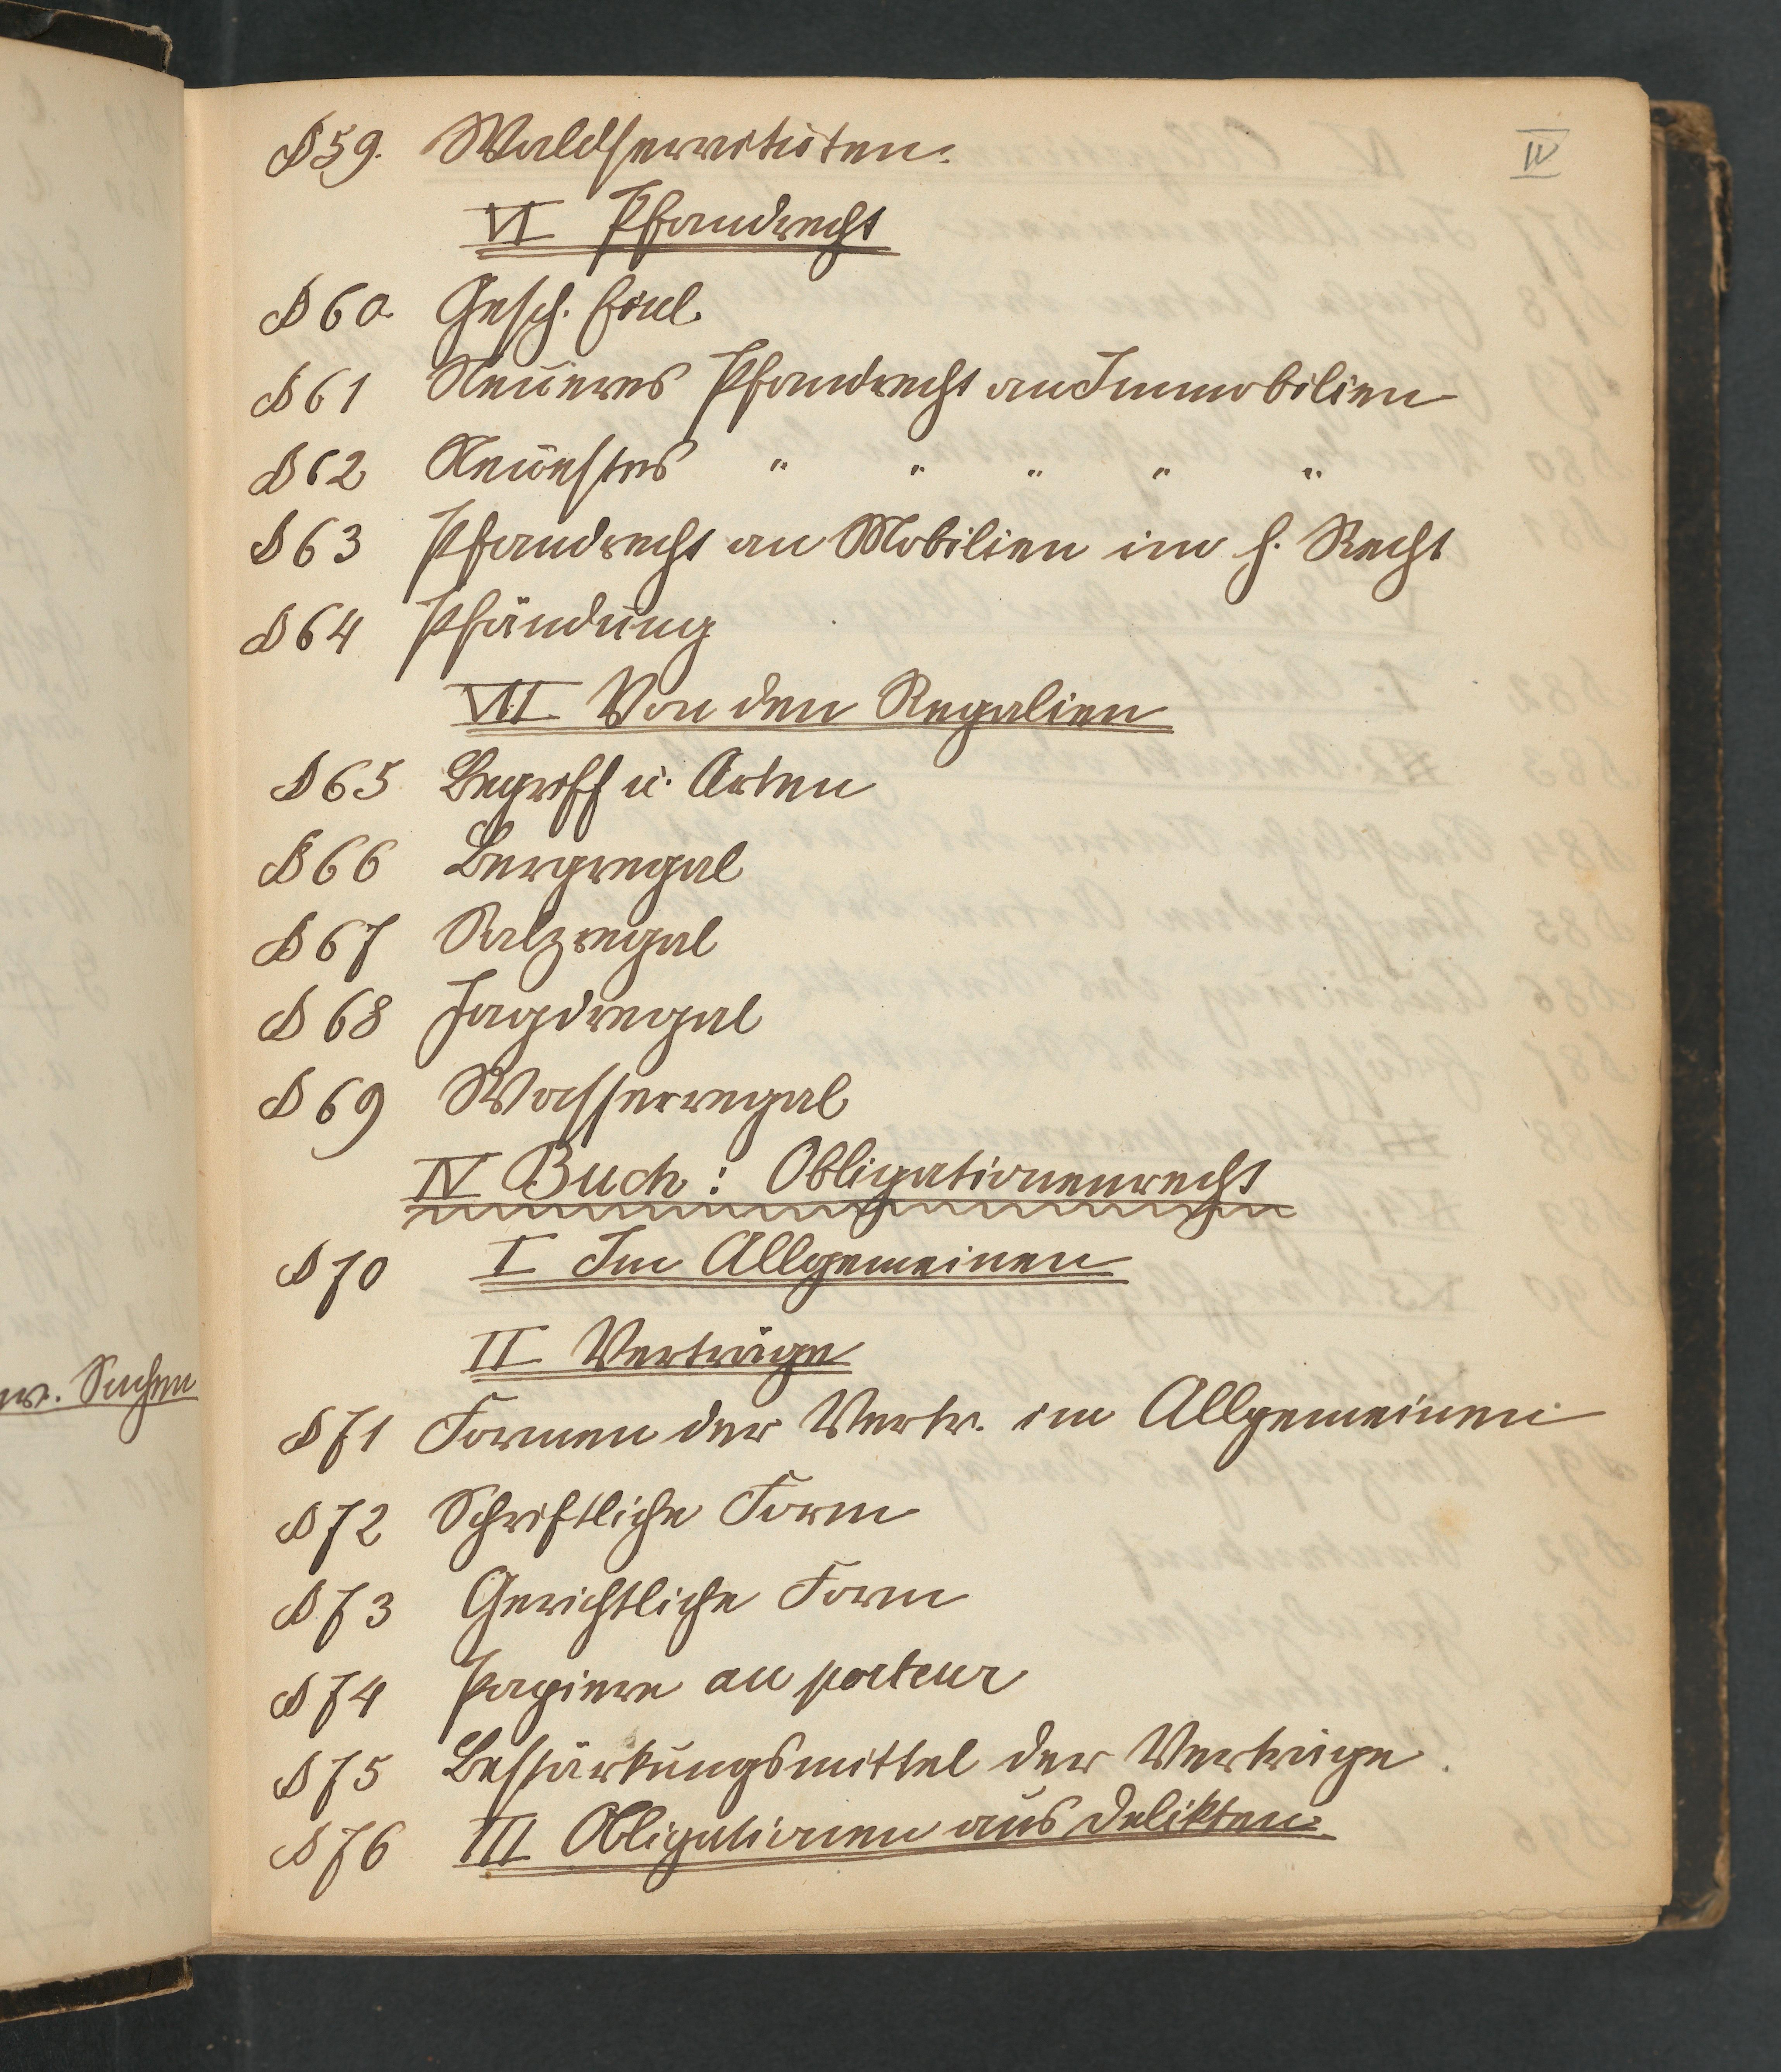 IV
§ 59. Waldservituten.
VI Pfandrecht
§ 60. Gesch. Einl.
§ 61 Neueres Pfandrecht an Immobilien
§ 62 Neuestes " " " " "
§ 63 Pfandrecht an Mobilien im h. Recht
§ 64 Pfändung
VII Von den Regalien
§ 65 Begriff u. Arten
§ 66 Bergregal
§ 67 Salzregal
§ 68 Jagdregal
§ 69 Wasserregal
IV Buch: Obligationenrecht
§ 70 I Im Allgemeinen
II Verträge
§ 71 Formen der Vertr. im Allgemeinen
§ 72 Schriftliche Form
§ 73 Gerichtliche Form
§ 74 Papiere au porteur
§ 75 Bestärkungsmittel der Verträge.
§ 76 III Obligationen aus Delikten.
Sachen